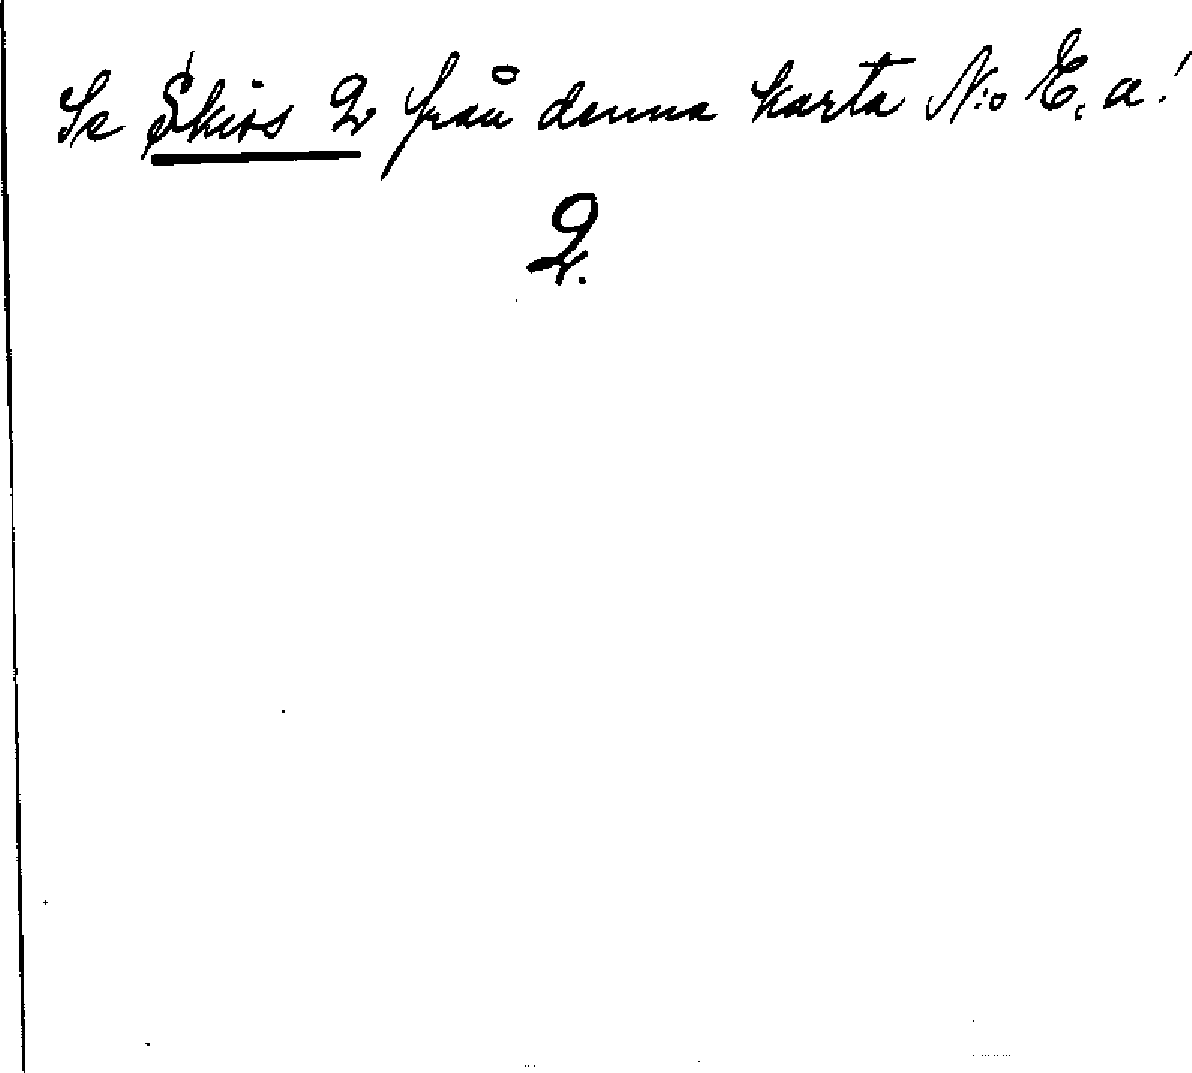 Se Skiss 2 från denna karta N:o E. a!
2.